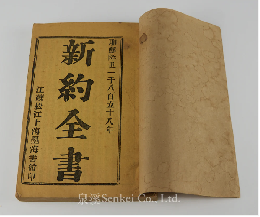 耶穌降世一千八百五十八年
新約全書
江蘇松江上海墨海書館印
皇漢Senkei Co., Ltd.